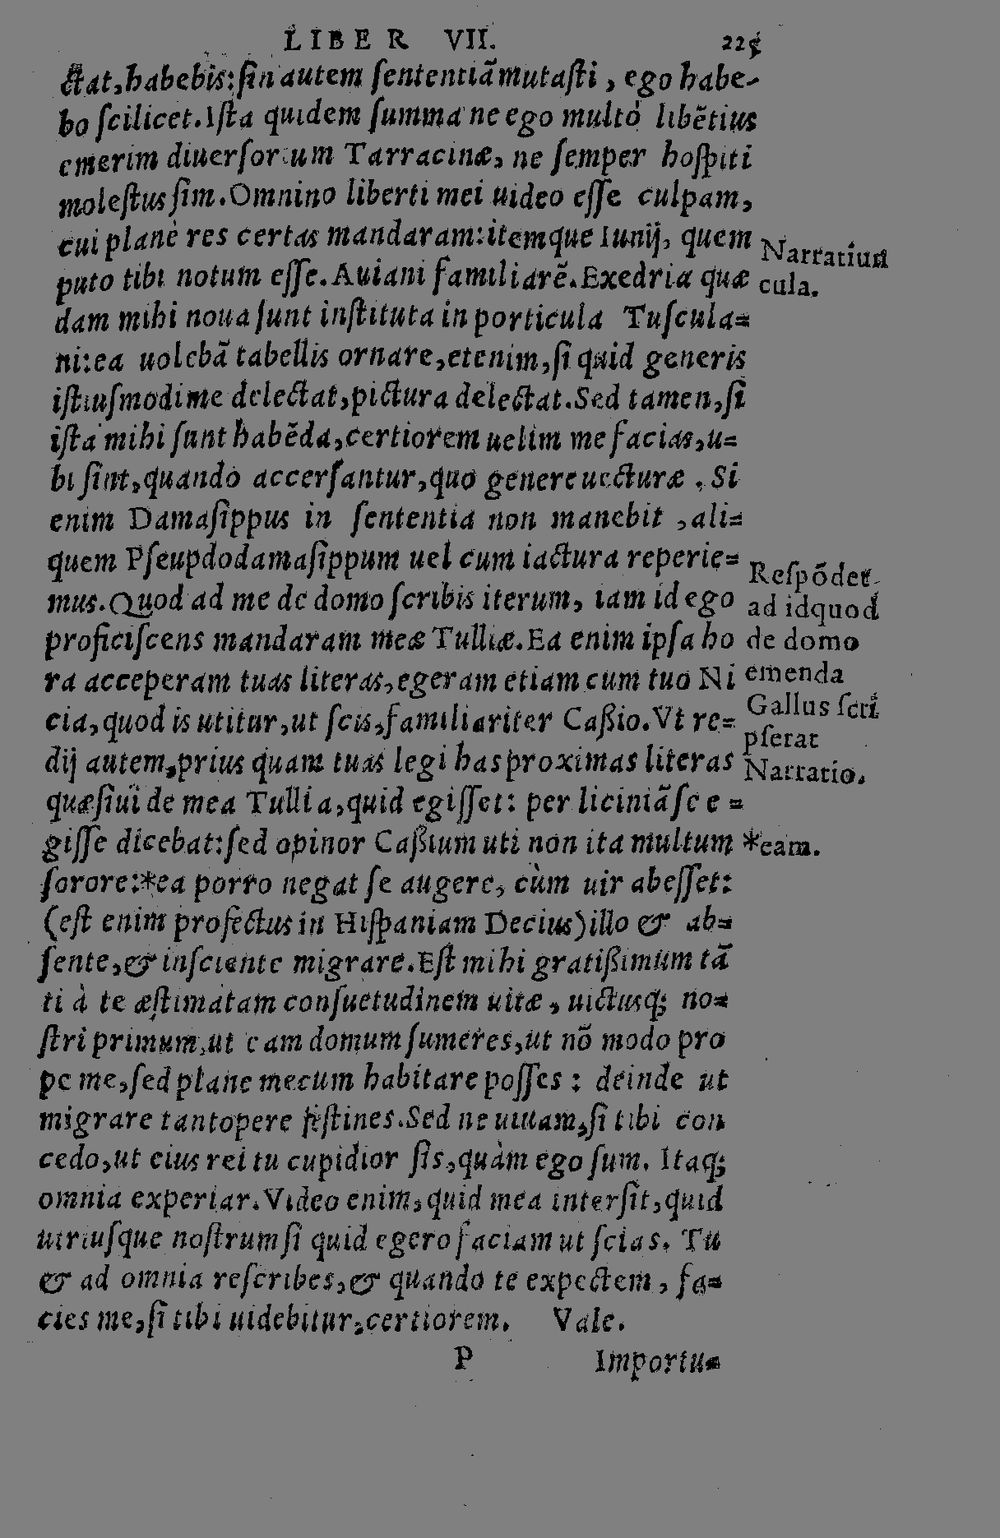 LIBER VII. 225
ctat, habebis: ſin autem ſententiã mutaſti, ego habe-
bo ſcilicet. Iſta quidem ſumma ne ego multò libẽtius
emerim diuerſorium Tarracinæ, ne ſemper hoſpiti
moleſtus ſim. Omnino liberti mei uideo eſſe culpam,
cui planè res certas mandaram: itemque Iunij, quem
puto tibi notum eſſe. Auiani familiarẽ. Exedria quæ
dam mihi noua ſunt inſtituta in porticula Tuſcula-
ni: ea uolebã tabellis ornare, etenim, ſi quid generis
iſtiuſmodi me delectat, pictura delectat. Sed tamen, ſi
iſta mihi ſunt habẽda, certiorem uelim me facias, u-
bi ſint, quando accerſantur, quo genere uecturæ. Si
enim Damaſippus in ſententia non manebit, ali-
quem Pſeupdodamaſippum uel cum iactura reperie-
mus. Quod ad me de domo ſcribis iterum, iam id ego
proficiſcens mandaram meæ Tulliæ. Ea enim ipſa ho
ra acceperam tuas literas, egeram etiam cum tuo Ni
cia, quod is utitur, ut ſcis, familiariter Caßio. Vt re-
dij autem, prius quam tuas legi has proximas literas
quæſiui de mea Tullia, quid egiſſet: per liciniã ſe e-
giſſe dicebat: ſed opinor Caßium uti non ita multum
ſorore: *ea porro negat ſe augere, cùm uir abeſſet:
(eſt enim profectus in Hiſpaniam Decius) illo & ab-
ſente, & inſciente migrare. Eſt mihi gratißimum tã
ti à te æſtimatam conſuetudinem uitæ, uictusq; no-
ſtri primum, ut eam domum ſumeres, ut nõ modo pro
pe me, ſed plane mecum habitare poſſes: deinde ut
migrare tantopere feſtines. Sed ne uiuam, ſi tibi con
cedo, ut eius rei tu cupidior ſis, quàm ego ſum. Itaq;
omnia experiar. Video enim, quid mea interſit, quid
utriuſque noſtrum ſi quid egero faciam ut ſcias. Tu
& ad omnia reſcribes, & quando te expectem, fa-
cies me, ſi tibi uidebitur, certiorem. Vale.
P Importu-
Narratiun
cula.
Reſpõdet
ad id quod
de domo
emenda
Gallus ſcri
pſerat
Narratio.
*eam.